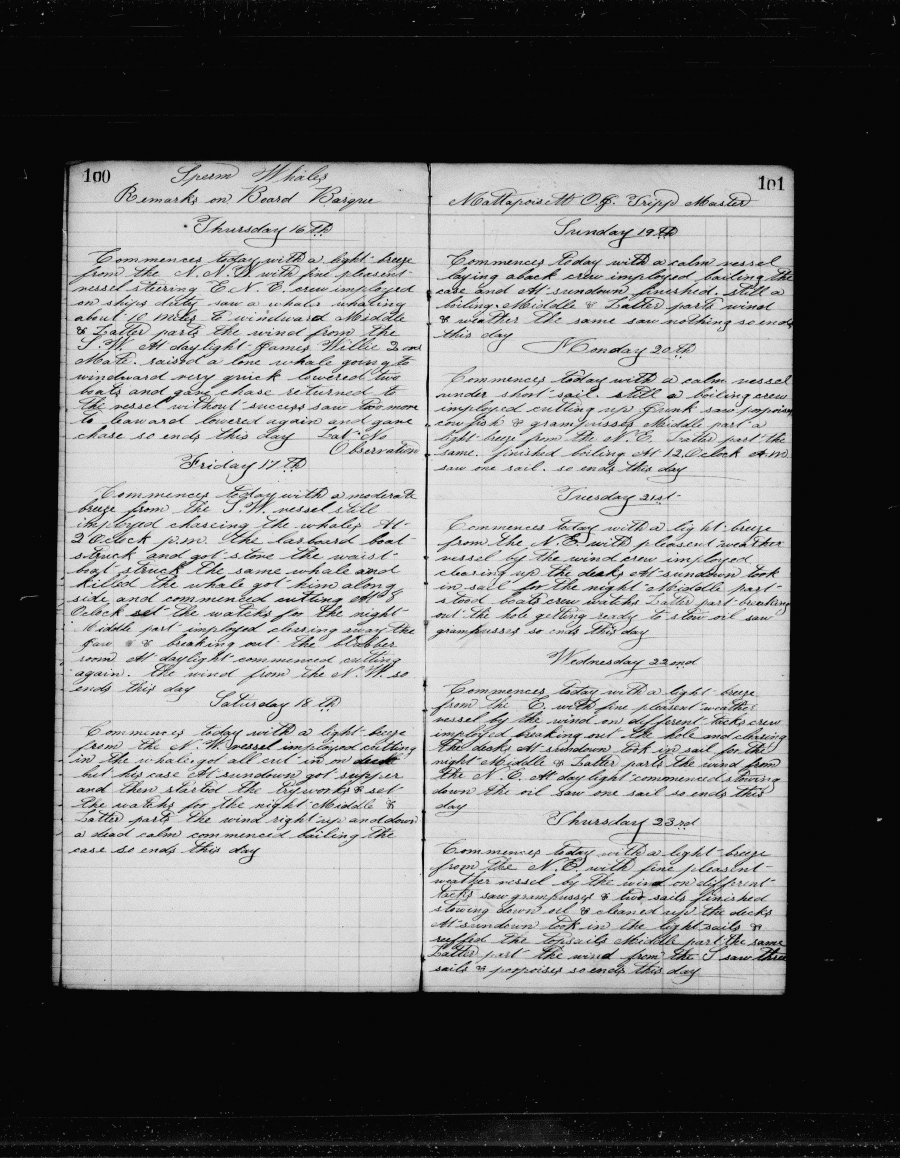 100
Sperm Whales
Remarks on Board Barque
Thursday 16th
Commences today with a light breeze
from the N.N.W with fine pleasent
vessel steering E N.E. crew imployed
on ships duty saw a whale whaleing
about 10 miles to windward Middle
& Latter parts the wind from the
S.W. At daylight James Willie 2ond
Mate raised a lone whale going to
windward very quick lowered two
boats and gave chase returned to
the vessel without success saw two more
to leaward lowered again and gave
chase so ends this day Lat No
Observation
Friday 17th
Commences today with a moderate
breeze from the S.W. vessel still
imployed chaseing the whales At
2 Oclock p.m. the larboard boat
struck and got stove the waist
boat struck the same whale and
killed the whale got him along
side and commenced cutting At 5
Oclock set the watchs for the night
Middle part imployed clearing away the
jaw & breaking out the blubber
room At daylight commenced cutting
again. the wind from the N.W. so
ends this day
Saturday 18th
Commences today with a light breeze
from the N.W. vessel imployed cutting
in the whale got all cut in on deck
but his case At sundown got supper
and then started the tryworks & set
the watchs for the night Middle &
Latter parts the wind right up and down
a dead calm commenced bailing the
case so ends this day
101
Mattapoisett O.G. Tripp Master
Sunday 19th
Commences today with a calm vessel
laying aback crew imployed bailing the
case and At sundown finished. still a
boiling. Middle & Latter parts wind
& weather the same saw nothing so ends
this day
Monday 20th
Commences today with a calm vessel
under short sail. still a boiling crew
imployed cutting up junk saw porpoises
cowfish & grampusses Middle part a
light breeze from the N.E. Latter part the
same. finished boiling At 12 Oclock A.M
saw one sail. so ends this day
Tuesday 21st
Commences today with a light breeze
from the N.E with pleasent weather
vessel by the wind crew imployed
clearing up the decks At sundown took
in sail for the night Middle part
stood boats crew watchs Latter part breaking
out the hole getting ready to stow oil saw
grampusses so ends this day
Wednesday 22ond
Commences today with a light breeze
from the E. with fine pleasent weather
vessel by the wind on diffrent tacks crew
imployed breaking out the hole and clearing
the decks At sundown took in sail for the
night Middle & Latter parts the wind from
the N.E. At day light commenced stowing
down the oil saw one sail so ends this
day
Thursday 23rd
Commences today with a light breeze
from the N.E. with fine pleasent
weather vessel by the wind on diffrent
tacks saw grampusses & two sails finished
stowing down oil & cleaned up the decks
At sundown took in the light sails &
reffed the topsails Middle part the same
Latter part the wind from the S saw three
sails & porpoises so ends this day